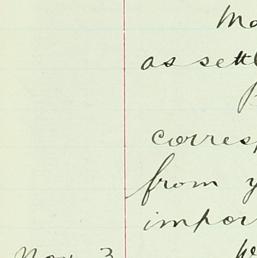 Mo
as settl
corresp
from y
impor
Nov. 3